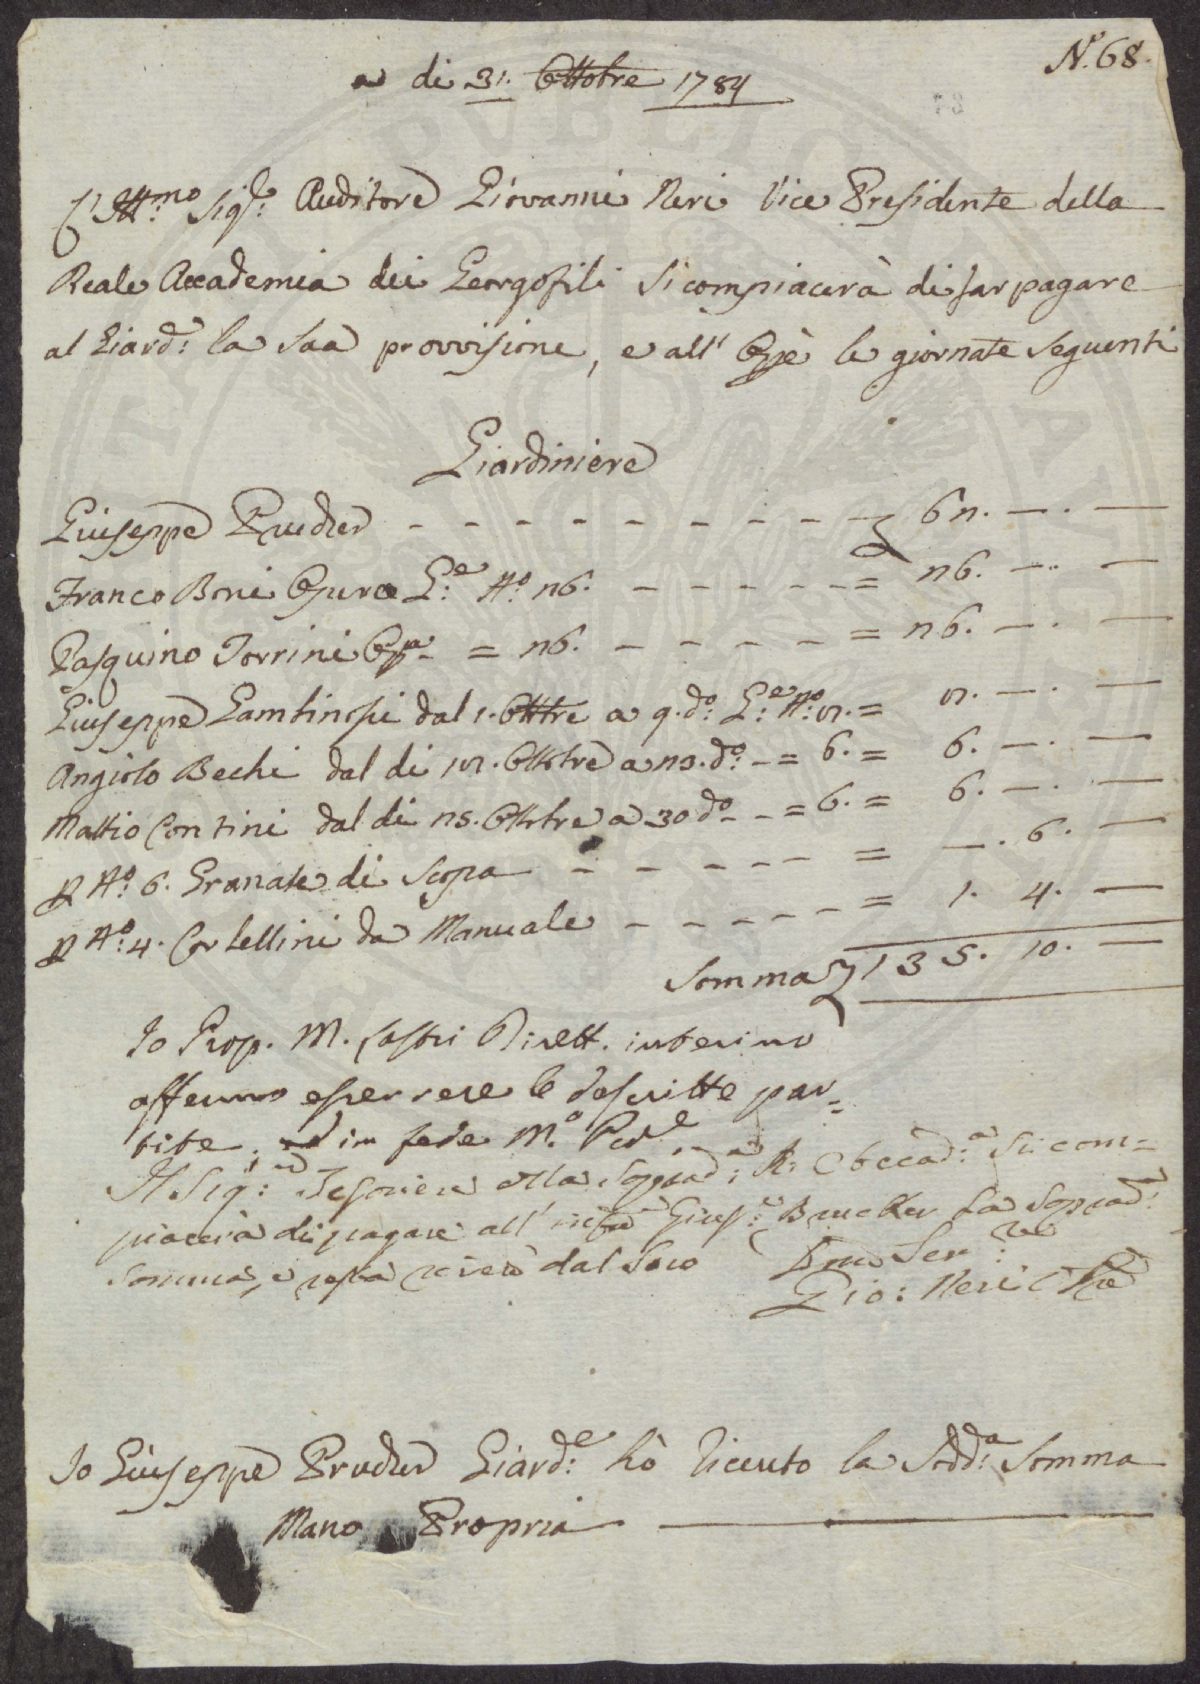 N.° 68.
a di 31. Ottobre 1784
L'Ill:mo Sig:e Auditore Giovanni Neri Vice Presidente della
Reale Accademia dei Georgofili si compiacerà di far pagare
al Giard:e la sua provvisione, e all' Opè le giornate seguenti
Giardiniere
Giuseppe Prucher - - - - - - - - - - - 62. —. —
Franco Boni Opera G:e N:o 26. - - - - - = 26. —. —
Pasquino Torrini Opa = 26. - - - - - = 26. —. —
Giuseppe dal 1. Ottbre a 9. do: G:e N:o 7. = 7. —. —
Angiolo Bechi dal di 17. Ottobre a 23. do. - = 6. = 6. —. —
Mattio Contini dal di 25. Ottobre a 30 do - - = 6. = 6. —. —
P N:o 6. Granate di Scopa - - - - - - = —. 6. —
P N:o 4. Cortellini da Manuale - - - - - = 1. 4. —
Somma 135. 10. —
Io Prop. M. Lastri Dirett. interino
affermo esser vere le descritte par=
tite, in fede M.o P
Il Sig:re Tesoriere della Soprad:a R: Accad:a Si com=
piacerà di pagare all' Gius:e Brucker La Soprad:a
Somma, e resta dal Suo
Gio: Neri
Io Giuseppe Prucher Giard:e hò Ricevuto la Sodd:a Somma
Mano Propria